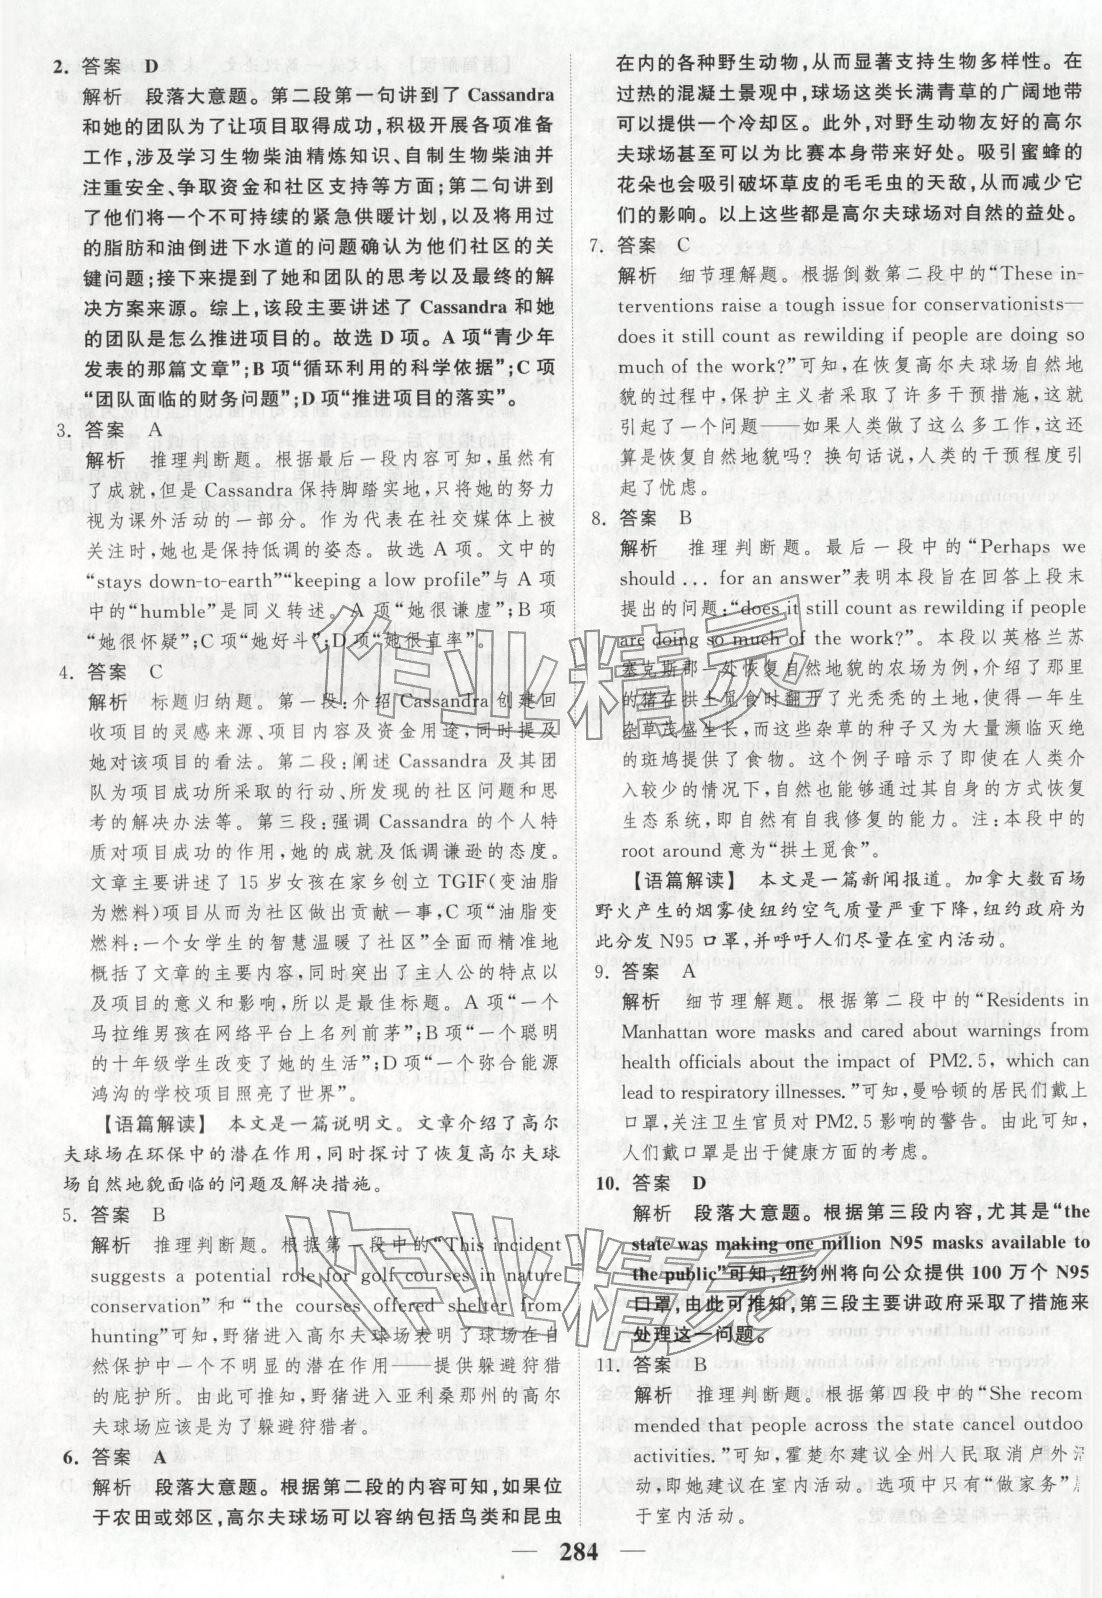 2. 答案 D
解析 段落大意题。第二段第一句讲到了 Cassandra
和她的团队为了让项目取得成功,积极开展各项准备
工作,涉及学习生物柴油精炼知识、自制生物柴油并
注重安全、争取资金和社区支持等方面;第二句讲到
了他们将一个不可持续的紧急供暖计划,以及将用过
的脂肪和油倒进下水道的问题确认为他们社区的关
键问题;接下来提到了她和团队的思考以及最终的解
决方案来源。综上,该段主要讲述了 Cassandra 和她
的团队是怎么推进项目的。故选 D 项。A 项“青少年
发表的那篇文章”;B 项“循环利用的科学依据”;C 项
“团队面临的财务问题”;D 项“推进项目的落实”。
3. 答案 A
解析 推理判断题。根据最后一段内容可知,虽然有
了成就,但是 Cassandra 保持脚踏实地,只把她的努力
视为课外活动的一部分。作为代表在社交媒体上被
关注时,她也是保持低调的姿态。故选 A 项。文中的
“stays down-to-earth”“keeping a low profile”与 A 项
中的“humble”是同义转述。A 项“她很谦虚”;B 项
“她很怀疑”;C 项“她好斗”;D 项“她很直率”。
4. 答案 C
解析 标题归纳题。第一段:介绍 Cassandra 创建回
收项目的灵感来源、项目内容及资金用途,同时提及
她对该项目的看法。第二段:阐述 Cassandra 及其团
队为项目成功所采取的行动、所发现的社区问题和思
考的解决办法等。第三段:强调 Cassandra 的个人特
质对项目成功的作用,她的成就及低调谦逊的态度。
文章主要讲述了 15 岁女孩在家乡创立 TGIF(变油脂
为燃料)项目从而为社区做出贡献一事,C 项“油脂变
燃料:一个女学生的智慧温暖了社区”全面而精准地
概括了文章的主要内容,同时突出了主人公的特点以
及项目的意义和影响,所以是最佳标题。A 项“一个
马拉维男孩在网络平台上名列前茅”;B 项“一个聪明
的十年级学生改变了她的生活”;D 项“一个弥合能源
鸿沟的学校项目照亮了世界”。
【语篇解读】 本文是一篇说明文。文章介绍了高尔
夫球场在环保中的潜在作用,同时探讨了恢复高尔夫球
场自然地貌面临的问题及解决措施。
5. 答案 B
解析 推理判断题。根据第一段中的“This incident
suggests a potential role for golf courses in nature
conservation”和“the courses offered shelter from
hunting”可知,野猪进入高尔夫球场表明了球场在自
然保护中一个不明显的潜在作用——提供躲避狩猎
的庇护所。由此可推知,野猪进入亚利桑那州的高尔
夫球场应该是为了躲避狩猎者。
6. 答案 A
解析 段落大意题。根据第二段的内容可知,如果位
于农田或郊区,高尔夫球场可以容纳包括鸟类和昆虫
在内的各种野生动物,从而显著支持生物多样性。在
过热的混凝土景观中,球场这类长满青草的广阔地带
可以提供一个冷却区。此外,对野生动物友好的高尔
夫球场甚至可以为比赛本身带来好处。吸引蜜蜂的
花朵也会吸引破坏草皮的毛毛虫的天敌,从而减少它
们的影响。以上这些都是高尔夫球场对自然的益处。
7. 答案 C
解析 细节理解题。根据倒数第二段中的“These in-
terventions raise a tough issue for conservationists—
does it still count as rewilding if people are doing so
much of the work?”可知,在恢复高尔夫球场自然地
貌的过程中,保护主义者采取了许多干预措施,这就
引起了一个问题——如果人类做了这么多工作,这还
算是恢复自然地貌吗?换句话说,人类的干预程度引
起了忧虑。
8. 答案 B
解析 推理判断题。最后一段中的“Perhaps we
should ... for an answer”表明本段旨在回答上段末
提出的问题:“does it still count as rewilding if people
are doing so much of the work?”。本段以英格兰苏
塞克斯郡一处恢复自然地貌的农场为例,介绍了那里
的猪在拱土觅食时翻开了光秃秃的土地,使得一年生
杂草茂盛生长,而这些杂草的种子又为大量濒临灭绝
的斑鸠提供了食物。这个例子暗示了即使在人类介
入较少的情况下,自然也能够通过其自身的方式恢复
生态系统,即自然有自我修复的能力。注:本段中的
root around 意为“拱土觅食”。
【语篇解读】 本文是一篇新闻报道。加拿大数百场
野火产生的烟雾使纽约空气质量严重下降,纽约政府为
此分发 N95 口罩,并呼吁人们尽量在室内活动。
9. 答案 A
解析 细节理解题。根据第二段中的“Residents in
Manhattan wore masks and cared about warnings from
health officials about the impact of PM2.5, which can
lead to respiratory illnesses.”可知,曼哈顿的居民们戴上
口罩,关注卫生官员对 PM2.5 影响的警告。由此可知,
人们戴口罩是出于健康方面的考虑。
10. 答案 D
解析 段落大意题。根据第三段内容,尤其是“the
state was making one million N95 masks available to
the public”可知,纽约州将向公众提供 100 万个 N95
口罩,由此可推知,第三段主要讲政府采取了措施来
处理这一问题。
11. 答案 B
解析 推理判断题。根据第四段中的“She recom
mended that people across the state cancel outdoo
activities.”可知,霍楚尔建议全州人民取消户外活
动,即她建议在室内活动。选项中只有“做家务”属
于室内活动。
284
作业精灵
作业精灵